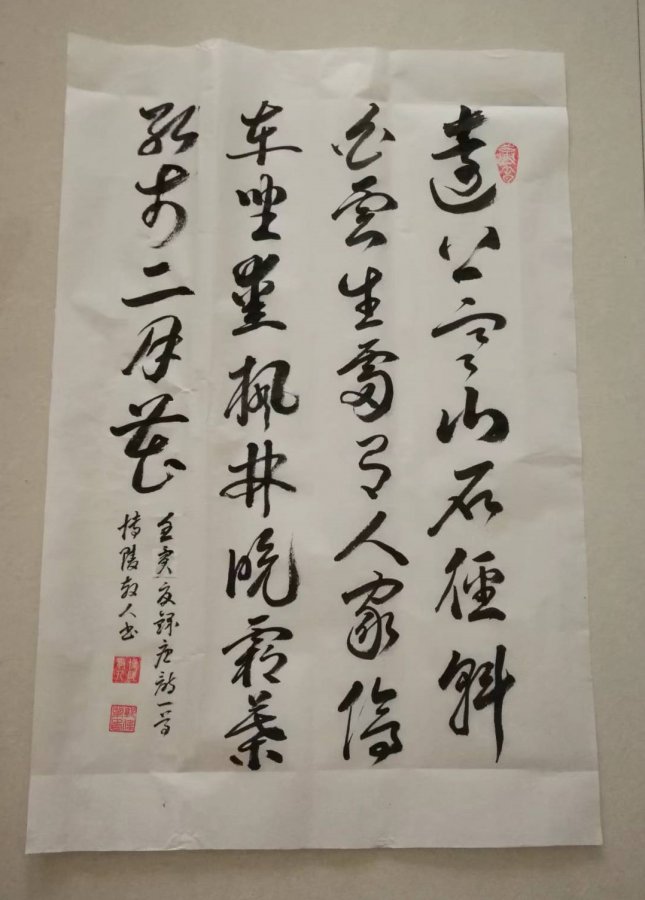 遠上寒山石徑斜
白雲生處有人家停
車坐愛楓林晚霜葉
紅於二月花
壬寅夏錄唐詩一首
博陵散人书